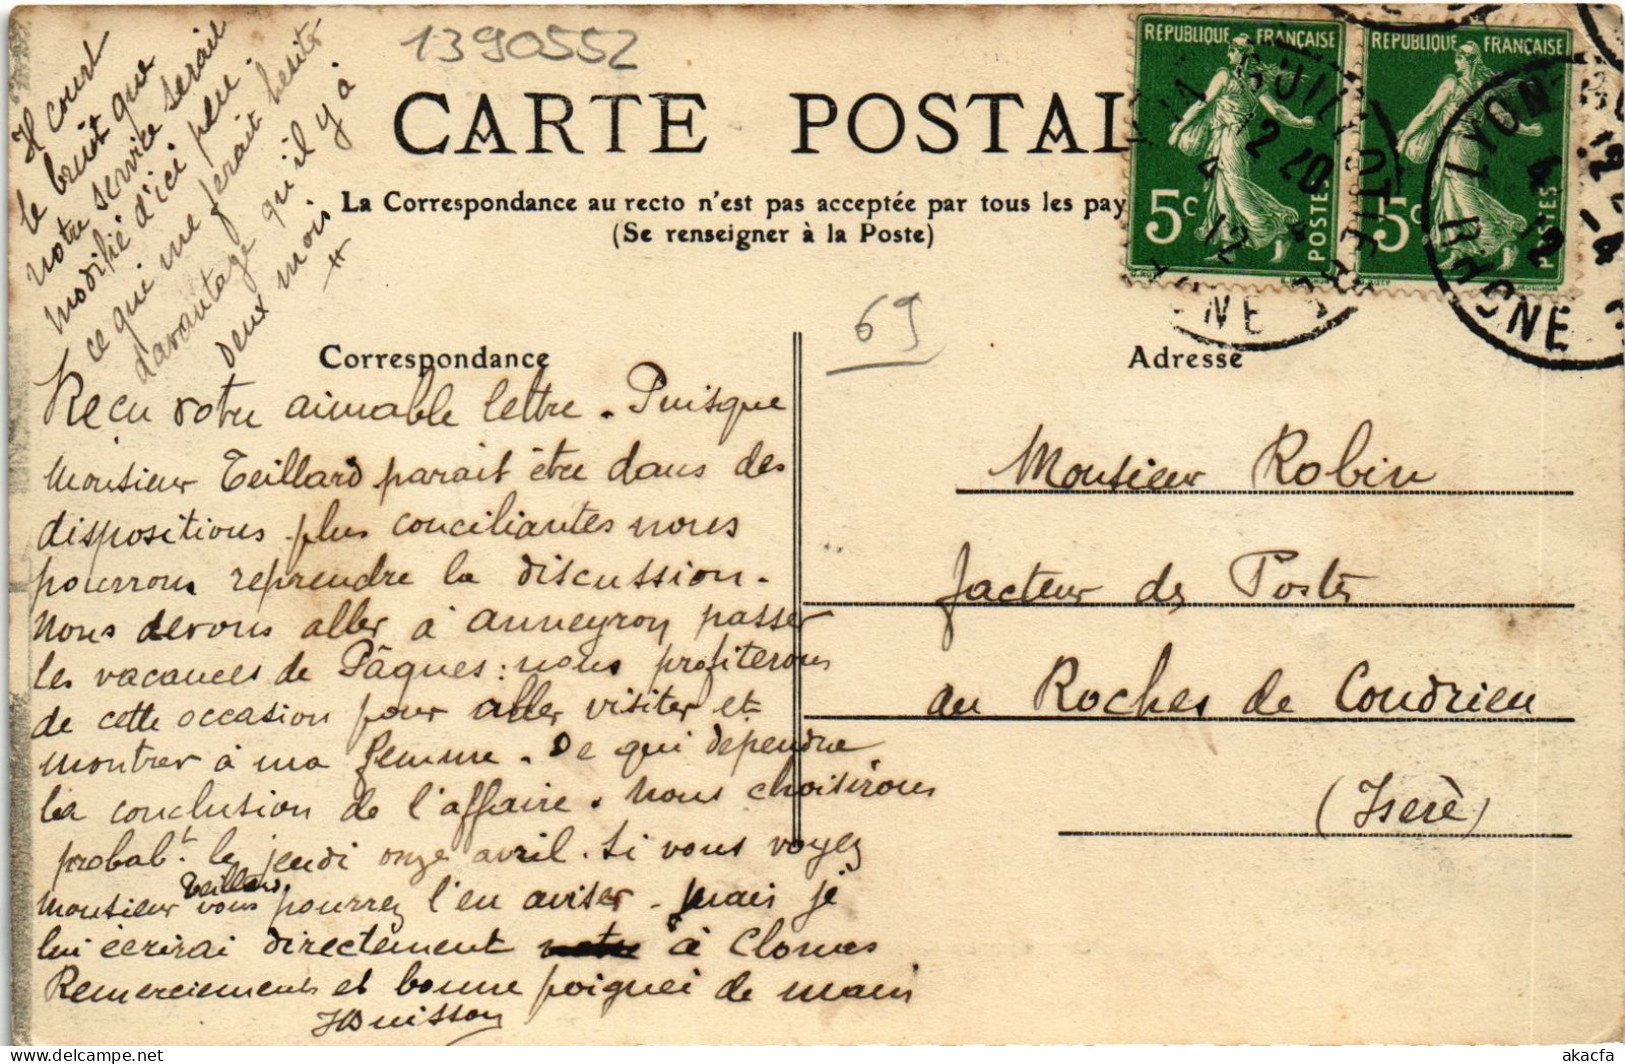 1390552
CARTE POSTAL
La Correspondance au recto n'est pas acceptée par tous les pay
(Se renseigner à la Poste)
REPUBLIQUE FRANÇAISE
5c
POSTES
REPUBLIQUE FRANÇAISE
5c
POSTES
LYON
RHONE
Il court
le bruit que
notre service serait
modifié d'ici peu.
ce qui me ferait hesiter
davantage qu'il y a
deux mois
69
Correspondance
Adresse
Recu votre aimable lettre. Puisque
Monsieur Teillard parait être dans des
dispositions plus conciliantes nous
pourrons reprendre la discussion.
Nous devons aller à Anneyron passer
les vacances de Pâques: nous profiterons
de cette occasion pour aller visiter et
montrer à ma femme. De qui dependra
la conclusion de l'affaire. Nous choisirons
probabt. le jeudi onze avril. Si vous voyez
Monsieur Teillard vous pourrez l'en aviser. Mais je
lui écrirai directement à
Remerciements et bonne poignei de main
HBuisson
Monsieur Robin
facteur des Postes
au Roches de Condrieu
(Iserè)
akacfa
delcampe.net